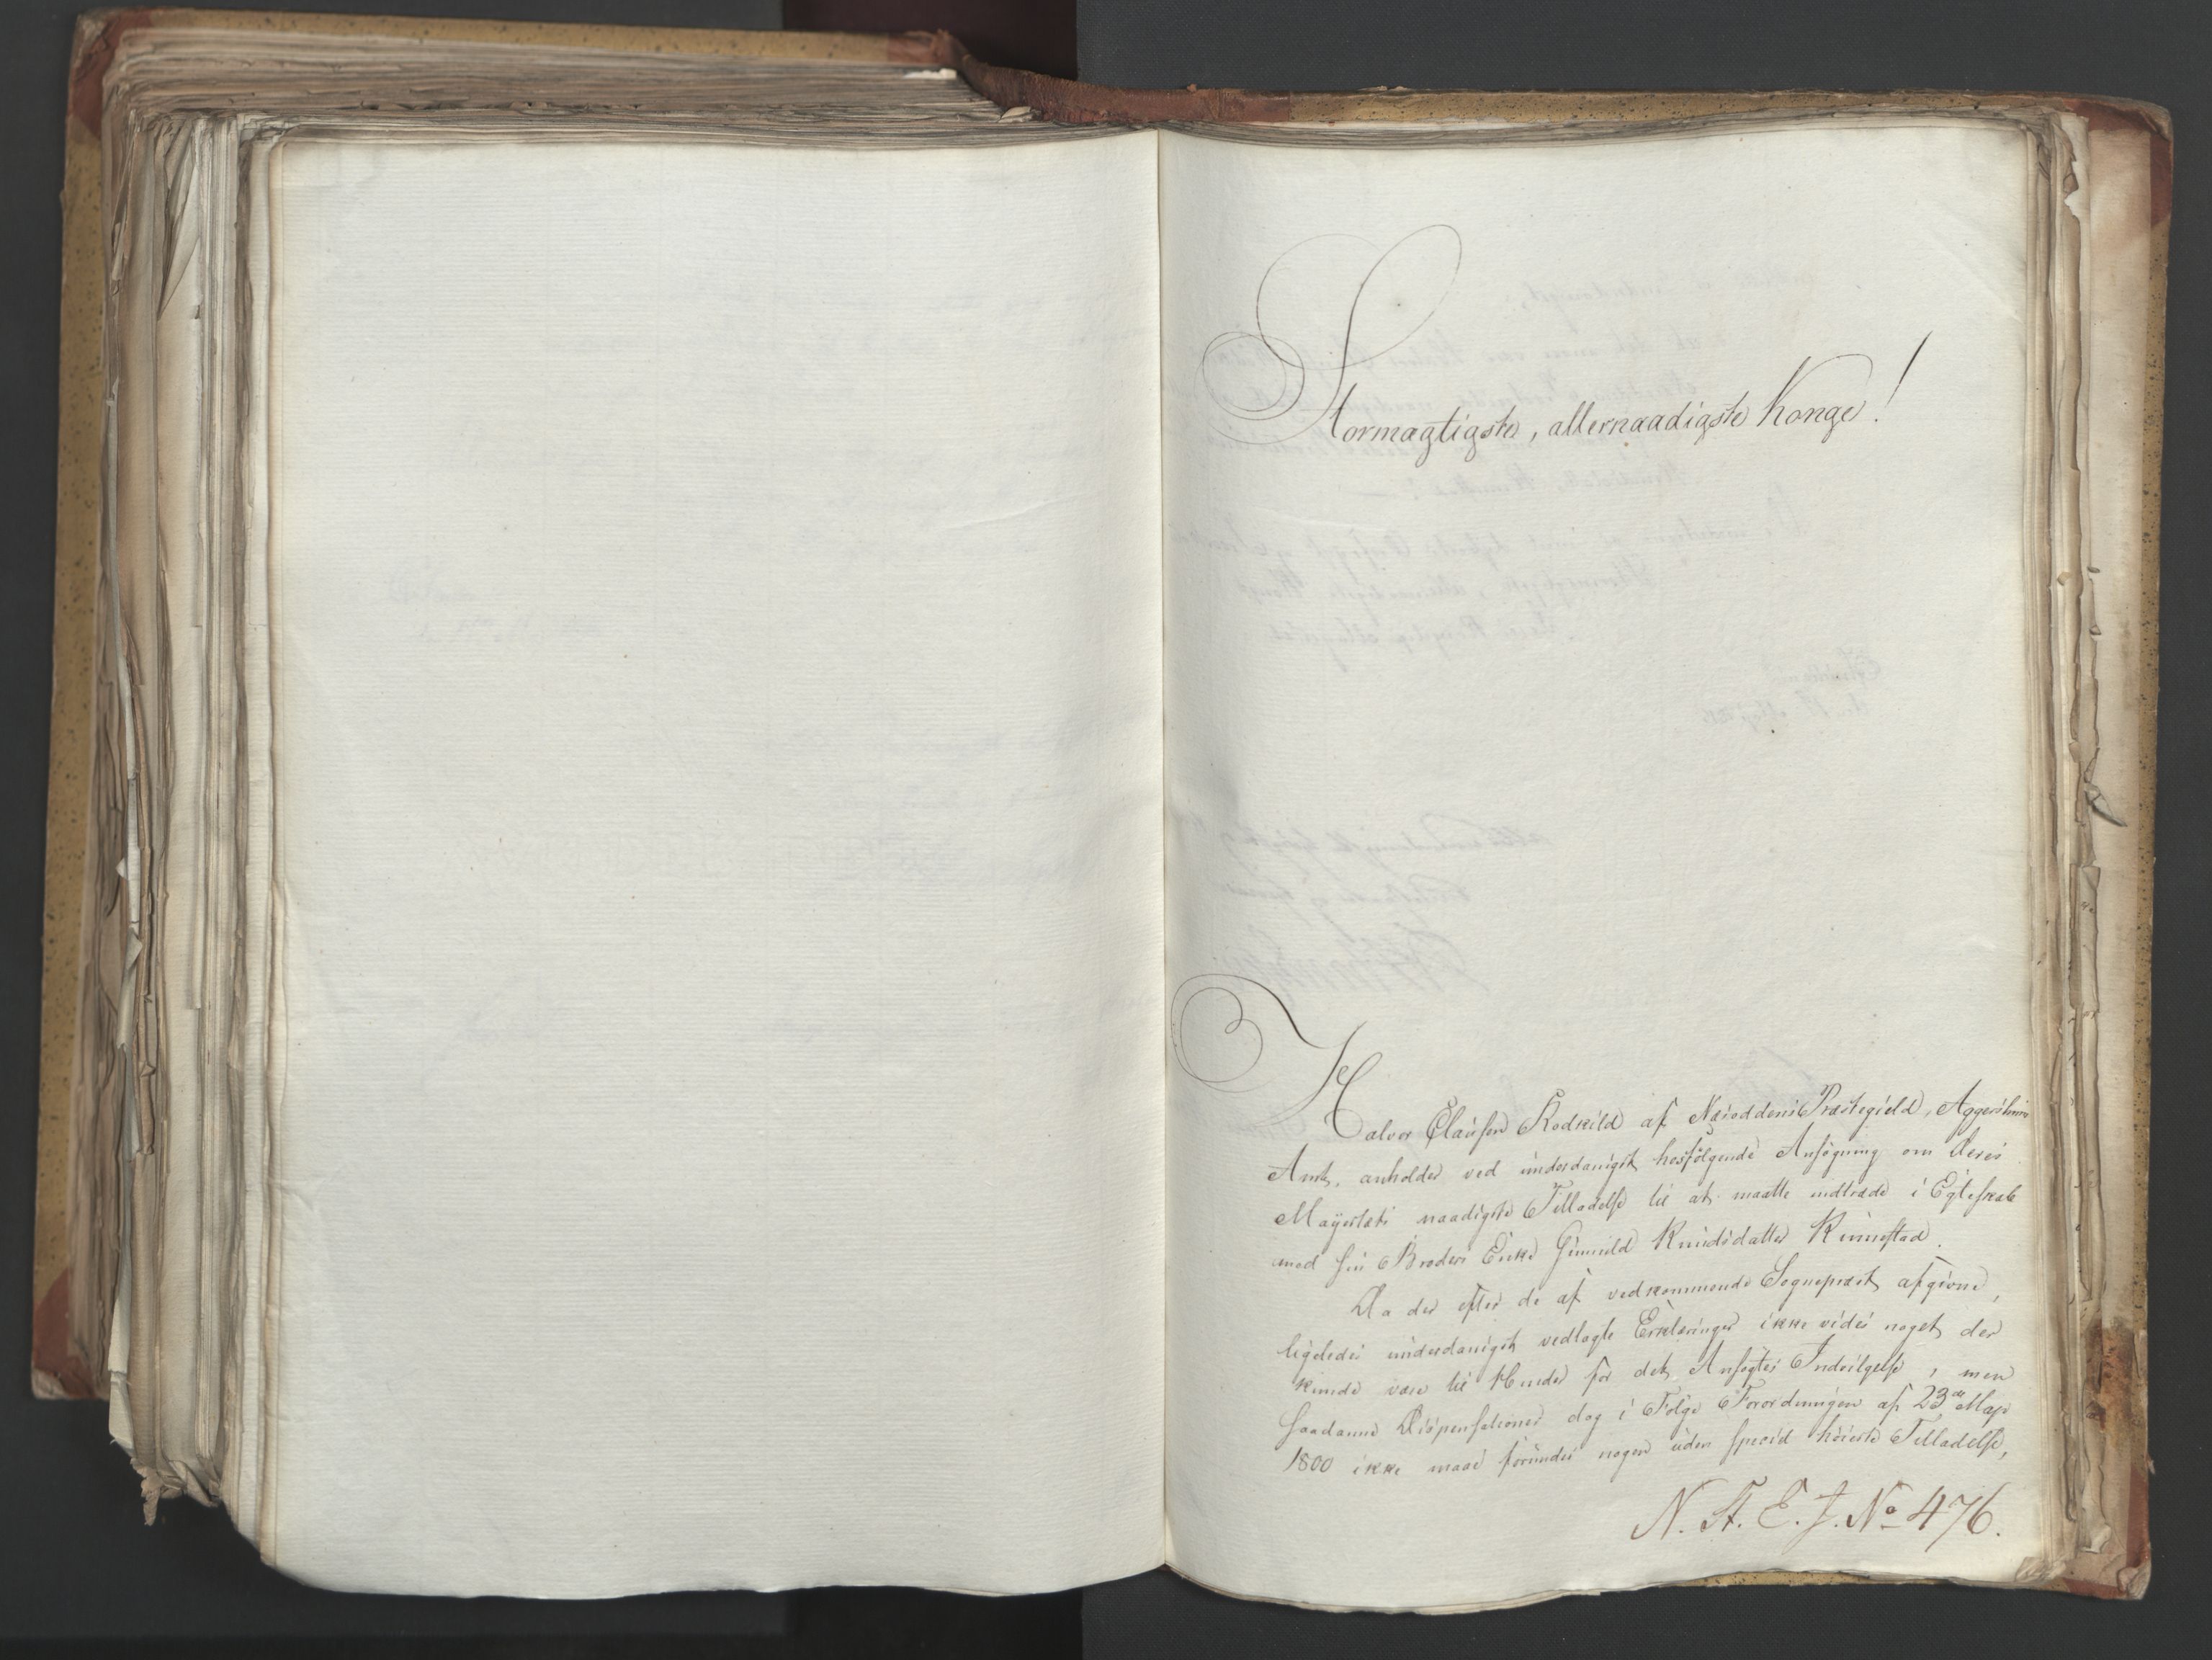 Stormægtigste, allernaadigste Konge!
Halvor Clausen Kodkild af Næsoddens Præstegield, Aggershuus
Amt, anholder ved underdanigst hosfølgende Ansøgning om Deres
Mayestæts naadigste Tilladelse til at maatte indtræde i Egteskab
med sin Broders Enke Gunnild Knudsdatter Kinnestad.
Da der efter de af vedkommende Sognepræst afgivne,
ligeledes underdanigst vedlagte Erklæringer ikke vides noget der
kunde være til Hinder for det Ansøgtes Indvilgelse, men
saadanne Dispensationer dog i Følge Forordningen af 23de May
1800 ikke maae forundes nogen uden speciel høieste Tilladelse,
N. St. E. J. No 476.